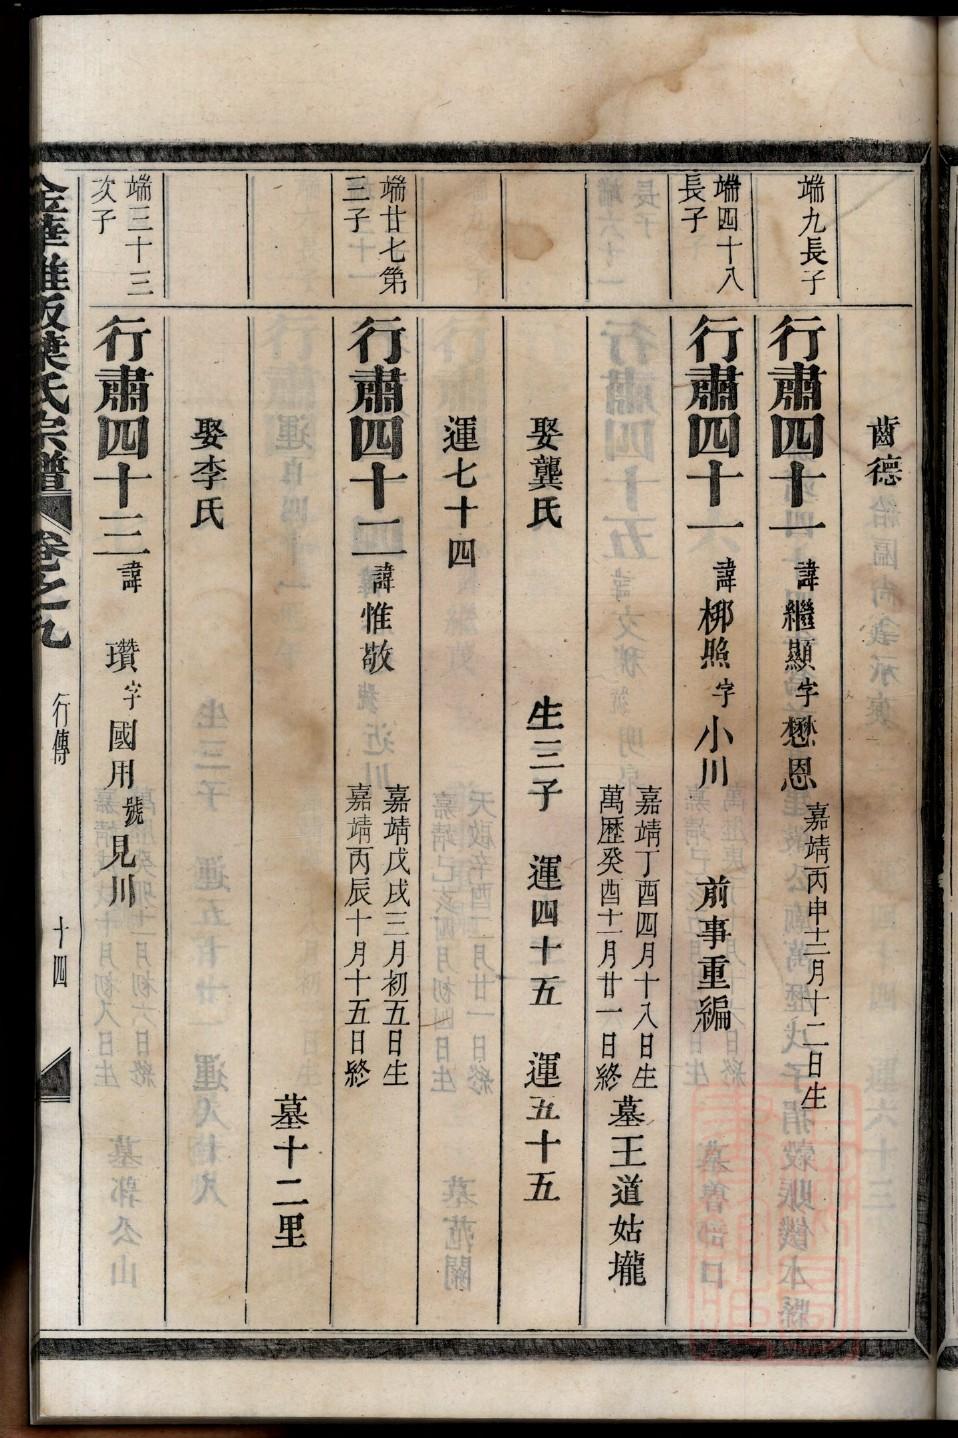 齒德
端九長子
行肅四十一 諱繼顯 字懋恩 嘉靖丙申十二月十二日生
端四十八
長子
行肅四十一 諱柳照 字小川 前事重編
嘉靖丁酉四月十八日生
萬歷癸酉十一月廿一日終
墓王道姑壠
娶龔氏 生三子 運四十五 運五十五
運七十四
端廿七第
三子
行肅四十二 諱惟敬
嘉靖戊戌三月初五日生
嘉靖丙辰十月十五日終
墓十二里
娶李氏
端三十三
次子
行肅四十三 諱瓚 字國用 號見川
葉氏宗譜 卷之九 行傳 十四